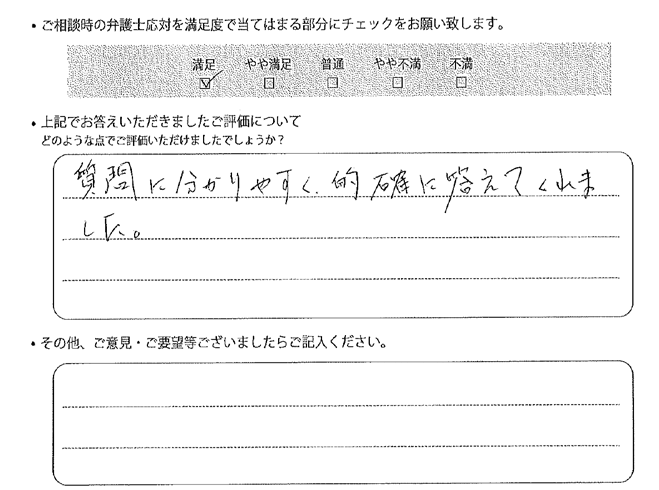 ・ご相談時の弁護士応対を満足度で当てはまる部分にチェックをお願い致します。
満足 やや満足 普通 やや不満 不満
☑ □ □ □ □
・上記でお答えいただきましたご評価について
どのような点でご評価いただけましたでしょうか？
質問に分かりやすく、的確に答えてくれま
した。
・その他、ご意見・ご要望等ございましたらご記入ください。